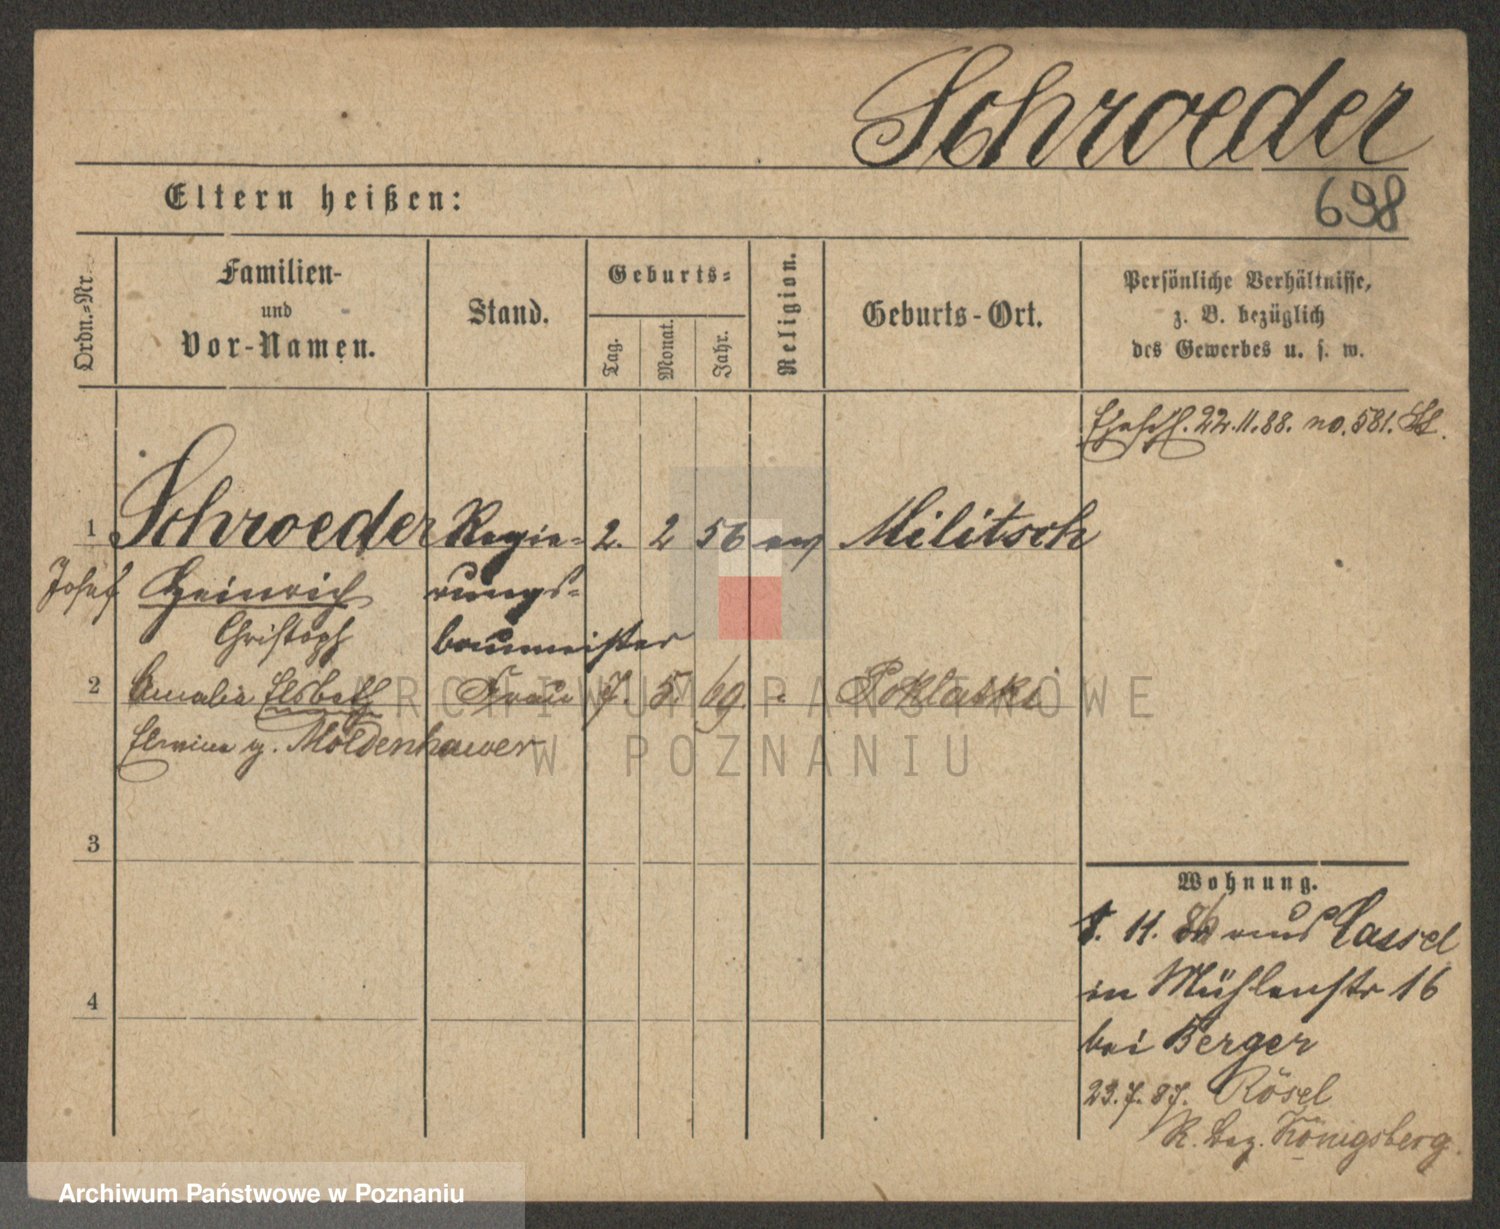 Schroeder
698
Eltern heißen:
Ordn.-Nr.
Familien-
und
Vor-Namen.
Stand.
Geburts-
Tag.
Monat.
Jahr.
Religion.
Geburts-Ort.
Persönliche Verhältnisse,
z. B. bezüglich
des Gewerbes u. s. w.
22.11.88. no. 581.
1 Schroeder Regie- 2. 2 56 ev Militsch
Josef Heinrich rungs-
Christoph baumeister
2 Amalie Elsbeth Frau 7. 5. 69. " Poklatki
g. Moldenhawer
3
Wohnung.
8. 11. 86 aus Cassel
4
in Mühlenstr 16
bei Berger
23.7.87. Rösel
R. Bez. Königsberg.
ARCHIWUM PAŃSTWOWE
W POZNANIU
Archiwum Państwowe w Poznaniu